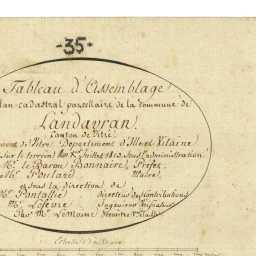 -35-
Tableau d'Assemblage
lan cadastral parcellaire de la Commune de
Landavran.
Canton de Vitré
de Vitré Département d'Ille et Vilaine
sur le terrein Juillet 1813 Sous l'administration
Mr. le Baron Bonnaire, Préfet
Mr. Poulard Maire
et sous la direction de
Mr. Pontallié Directeur des Contributions
Mr. Lefeivre Ingénieur Vérificateur
Par Mr. Lemoine Géomètre
Echelle